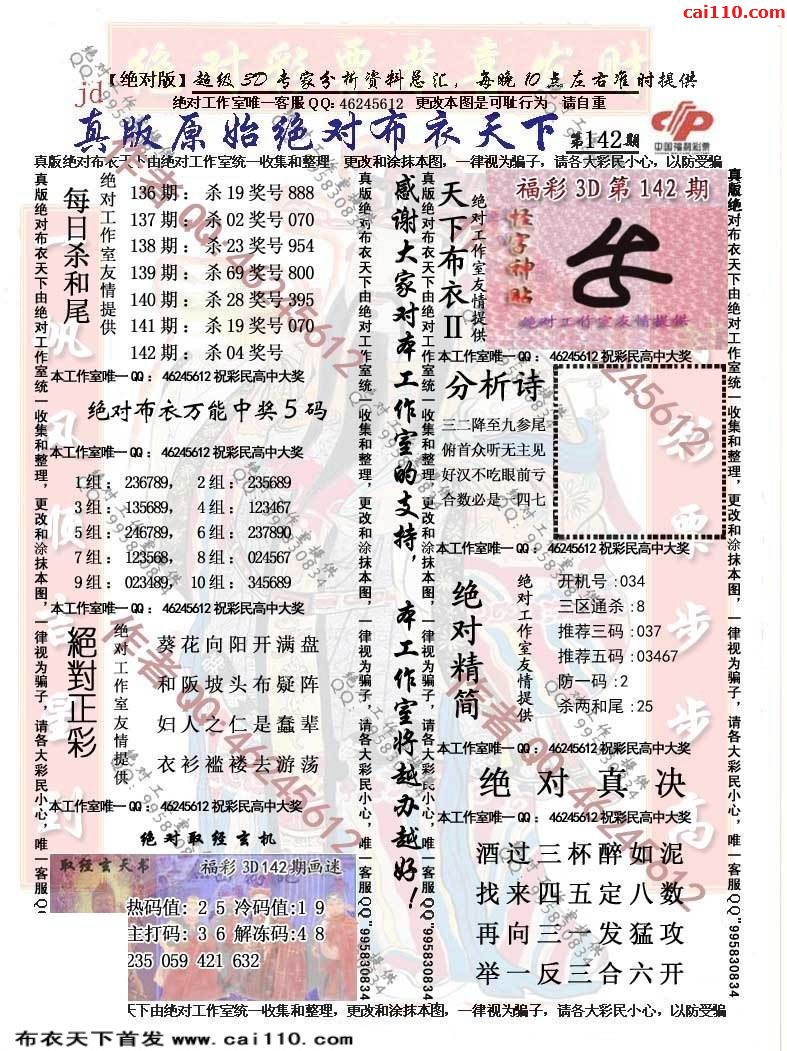 cai110.com
【绝对版】超级3D专家分析资料总汇，每晚10点左右准时提供
jd
绝对工作室唯一客服QQ：46245612 更改本图是可耻行为 请自重
真版原始绝对布衣天下 第142期
中国福利彩票
真版绝对布衣天下由绝对工作室统一收集和整理，更改和涂抹本图，一律视为骗子，请各大彩民小心，以防受骗
每日杀和尾
绝对工作室友情提供
136期：杀19奖号888
137期：杀02奖号070
138期：杀23奖号954
139期：杀69奖号800
140期：杀28奖号395
141期：杀19奖号070
142期：杀04奖号
本工作室唯一QQ：46245612祝彩民高中大奖
绝对布衣万能中奖5码
本工作室唯一QQ：46245612祝彩民高中大奖
1组：236789， 2组：235689
3组：135689， 4组：123467
5组：246789， 6组：237890
7组：123568， 8组：024567
9组：023489， 10组：345689
本工作室唯一QQ：46245612祝彩民高中大奖
絕對正彩
绝对工作室友情提供
葵花向阳开满盘
和阪坡头布疑阵
妇人之仁是蠢辈
衣衫褴褛去游荡
本工作室唯一QQ：46245612祝彩民高中大奖
绝对取经玄机
取经玄天书 福彩3D142期画迷
热码值：25冷码值:19
主打码：36解冻码:48
235 059 421 632
感谢大家对本工作室的支持，本工作室将越办越好！
天下布衣II
绝对工作室友情提供
福彩3D第142期
怪字神贴
绝对工作室友情提供
本工作室唯一QQ：46245612祝彩民高中大奖
分析诗
三二降至九参尾
俯首众听无主见
好汉不吃眼前亏
合数必是一四七
本工作室唯一QQ：46245612祝彩民高中大奖
绝对精简
绝对工作室友情提供
开机号:034
三区通杀:8
推荐三码:037
推荐五码:03467
防一码:2
杀两和尾:25
本工作室唯一QQ：46245612祝彩民高中大奖
绝对真决
本工作室唯一QQ：46245612祝彩民高中大奖
酒过三杯醉如泥
找来四五定八数
再向三一发猛攻
举一反三合六开
真版绝对布衣天下由绝对工作室统一收集和整理，更改和涂抹本图，一律视为骗子，请各大彩民小心，唯一客服QQ"995830834
天下由绝对工作室统一收集和整理，更改和涂抹本图，一律视为骗子，请各大彩民小心，以防受骗
布衣天下首发 www.cai110.com